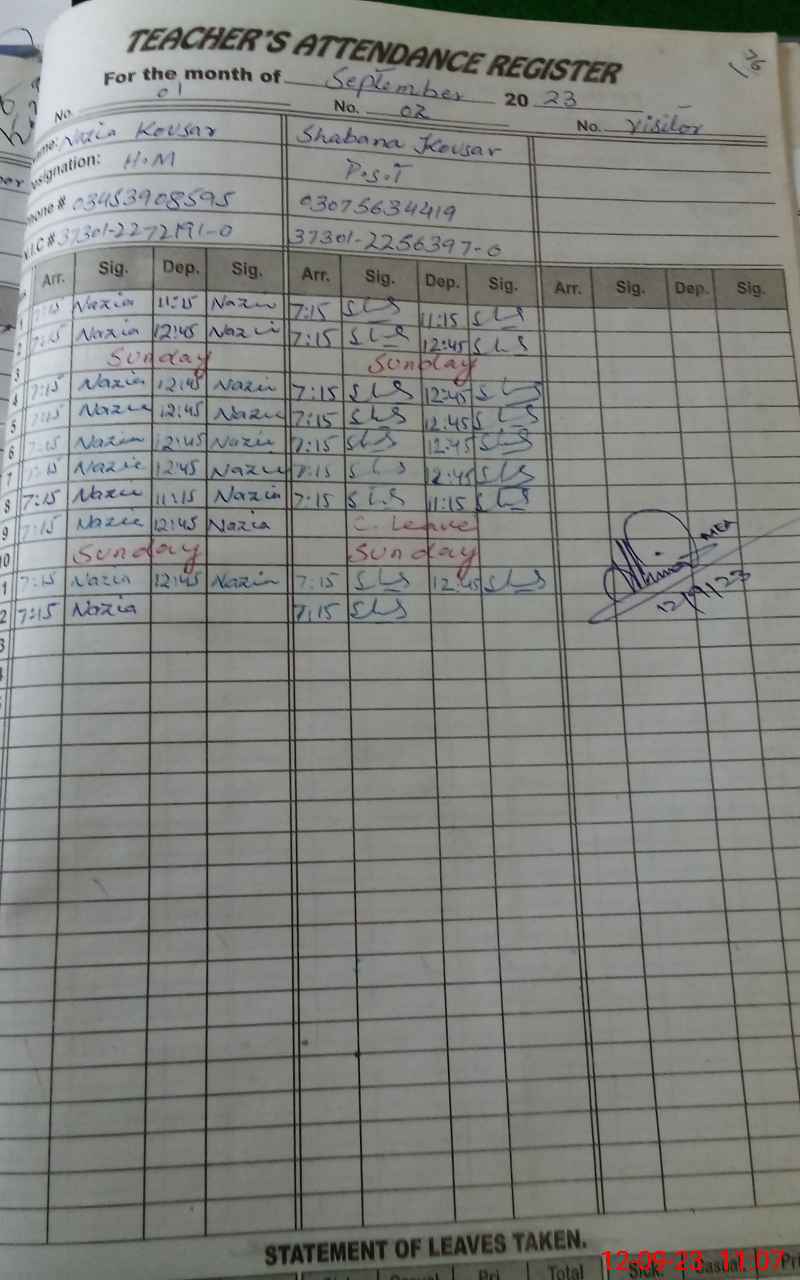 TEACHER'S ATTENDANCE REGISTER
For the month of September 20 23
No. 01 No. 02 No. Visitor
Name: Nazia Kovsar Shabana Kovsar
Designation: H.M P.S.T
Phone # 03453908595 03075634419
N.I.C # 37301-2272191-0 37301-2256397-0
Arr. Sig. Dep. Sig. Arr. Sig. Dep. Sig. Arr. Sig. Dep. Sig.
1 7:15 Nazia 11:15 Nazia 7:15 11:15
2 7:15 Nazia 12:45 Nazia 7:15 12:45
3 Sunday Sunday
4 7:15 Nazia 12:45 Nazia 7:15 12:45
5 7:15 Nazia 12:45 Nazia 7:15 12:45
6 7:15 Nazia 12:45 Nazia 7:15 12:45
7 7:15 Nazia 12:45 Nazia 7:15 12:45
8 7:15 Nazia 11:15 Nazia 7:15 11:15
9 7:15 Nazia 12:45 Nazia C. Leave
10 Sunday Sunday
1 7:15 Nazia 12:45 Nazia 7:15 12:45
2 7:15 Nazia 7:15
MEA
12/9/23
3
4
STATEMENT OF LEAVES TAKEN.
12-09-23 11:07
Total Sick. Casual Pri